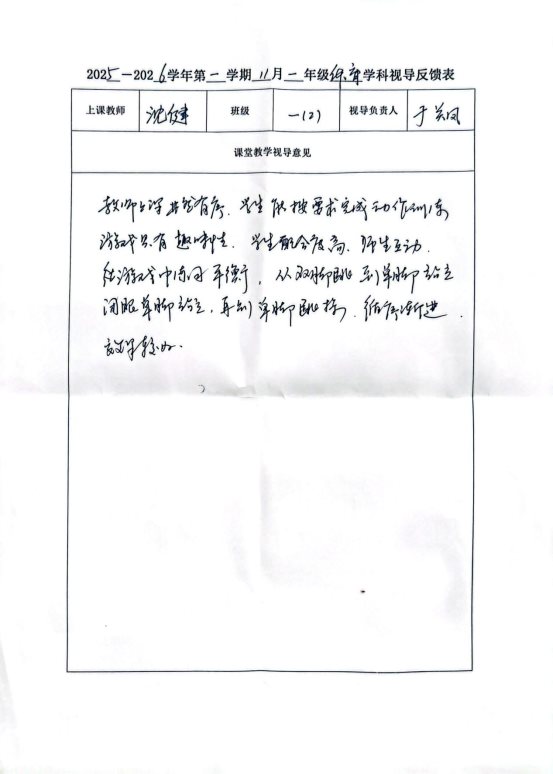 2025－2026学年第一学期11月一年级体育学科视导反馈表
上课教师 沈健 班级 一(2) 视导负责人 于美凤
课堂教学视导意见
教师上课井然有序、学生能按要求完成动作训练
游戏具有趣味性、学生配合度高、师生互动、
在游戏中练习平衡，从双脚跳到单脚站立
闭眼单脚站立，再到单脚跳接、循序渐进、
效果较好.